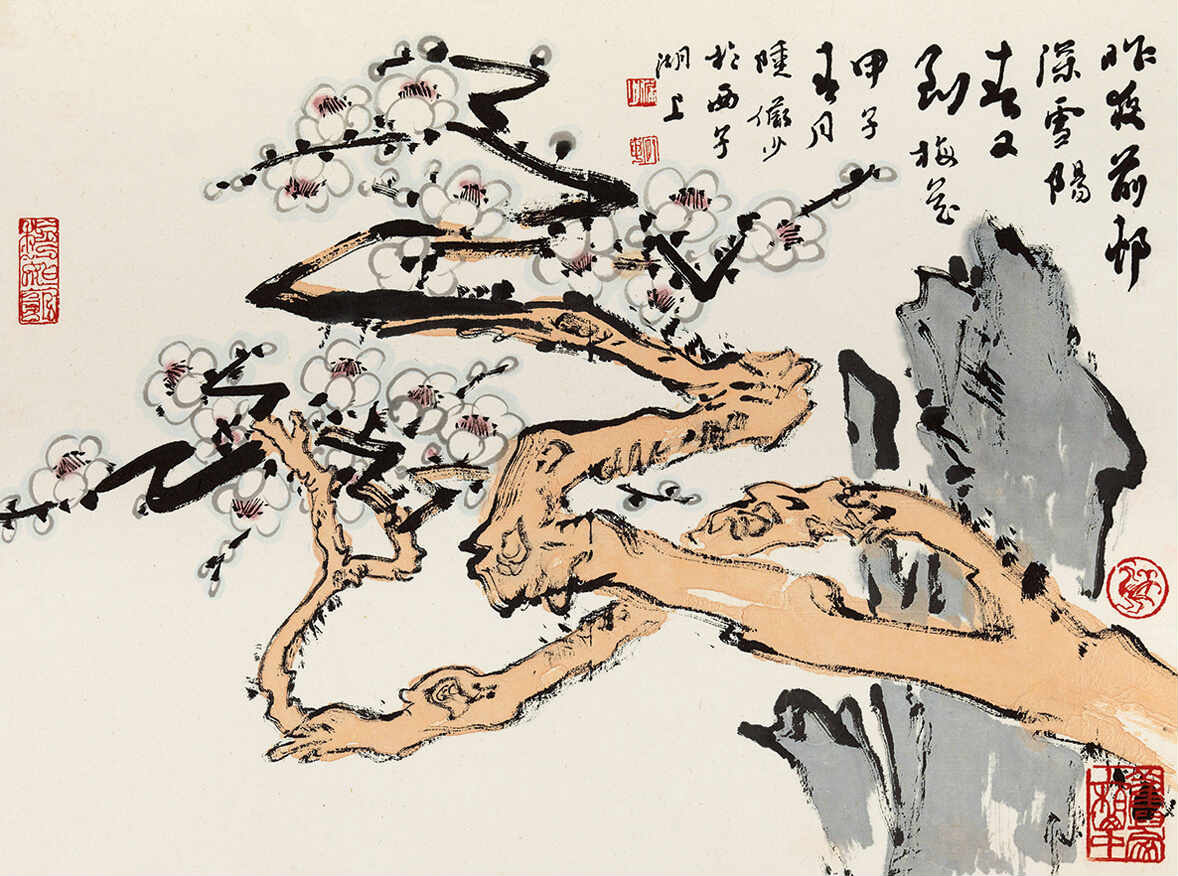 昨夜前邨
深雪陽
春又
到梅花
甲子
春月
陸儼少
於西子
湖上